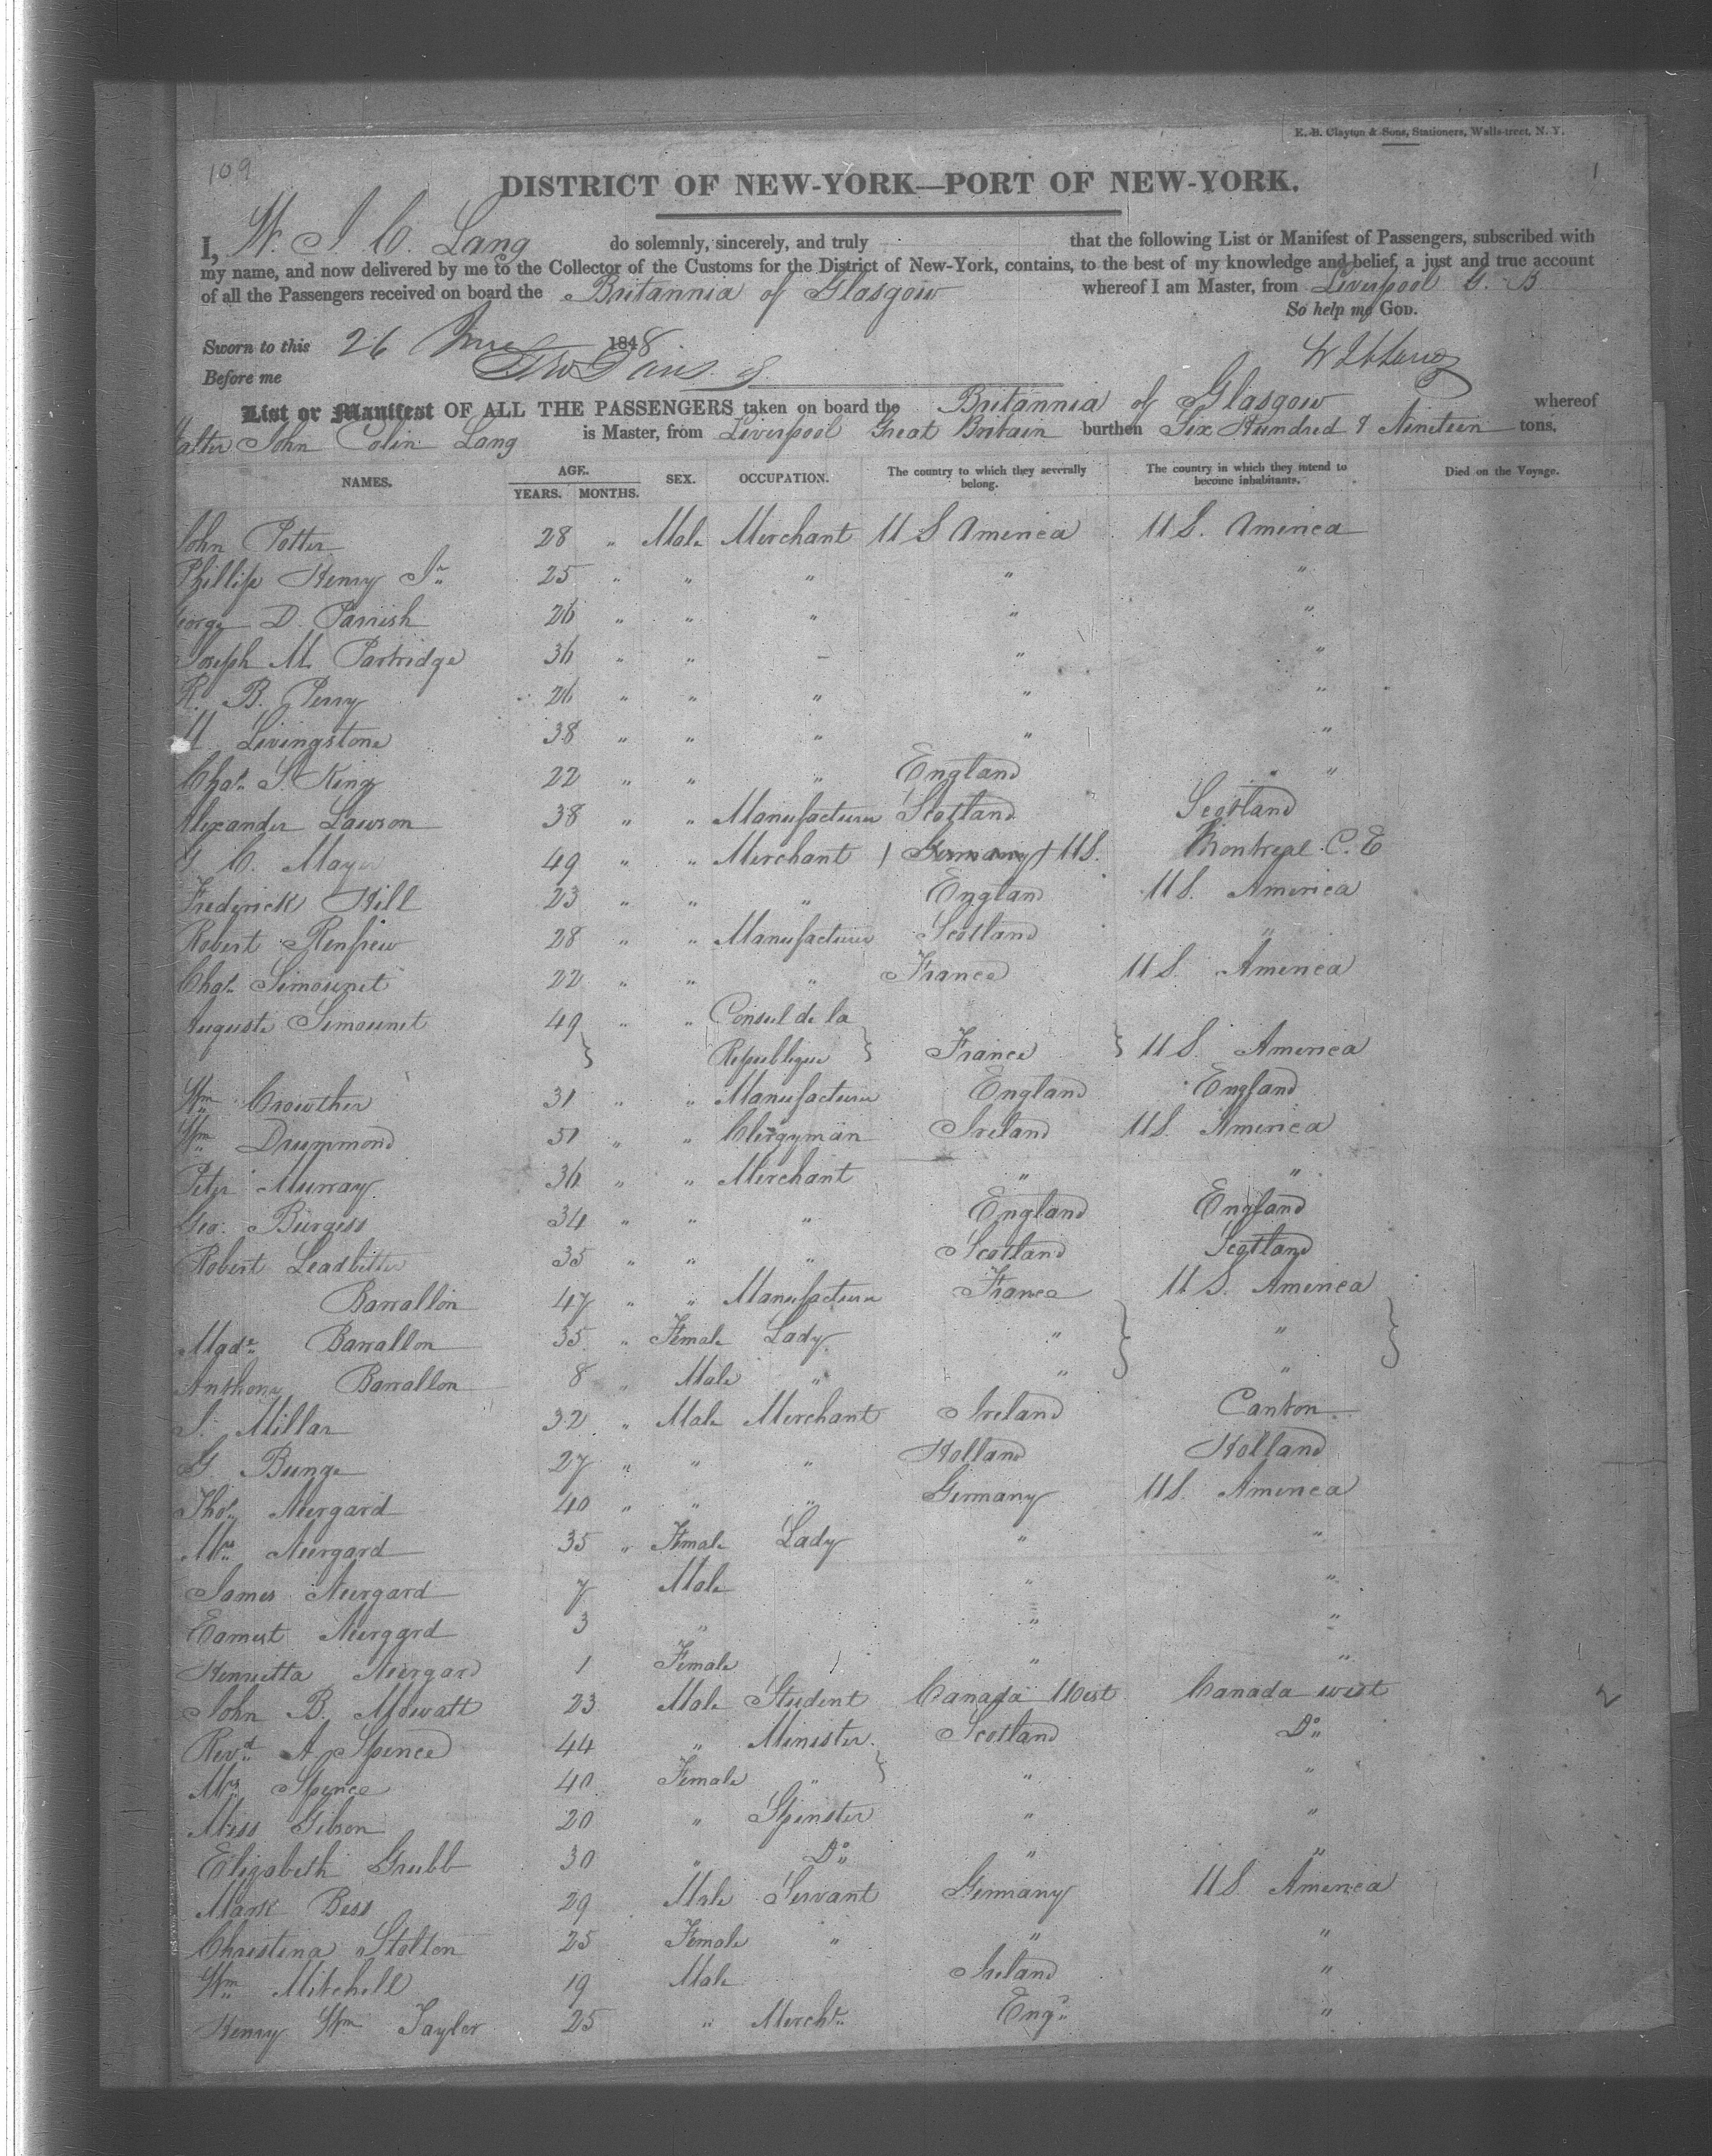 E. B. Clayton & Sons, Stationers, Wall-street, N. Y.
109
1
DISTRICT OF NEW-YORK—PORT OF NEW-YORK.
I, W. J. C. Lang do solemnly, sincerely, and truly that the following List or Manifest of Passengers, subscribed with
my name, and now delivered by me to the Collector of the Customs for the District of New-York, contains, to the best of my knowledge and belief, a just and true account
of all the Passengers received on board the Britannia of Glasgow whereof I am Master, from Liverpool G. B.
So help me GOD.
Sworn to this 26 June 1848
Before me
List or Manifest OF ALL THE PASSENGERS taken on board the Britannia of Glasgow whereof
Walter John Colin Lang is Master, from Liverpool Great Britain burthen Six Hundred & Nineteen tons.
NAMES. AGE. YEARS. MONTHS. SEX. OCCUPATION. The country to which they severally belong. The country in which they intend to become inhabitants. Died on the Voyage.
John Potter 28 " Male Merchant U S America U S. America
Phillip Henry Jr 25 " " " " "
George D. Parrish 26 " " " " "
Joseph M. Partridge 36 " " – " "
R. B. Perry 26 " " " " "
Livingstone 38 " " " " "
Chas. S. King 22 " " " England " "
Alexander Lawson 38 " " Manufacturer Scotland Scotland
G. C. Mayer 49 " " Merchant Germany U S. Montreal C. E
Frederick Hill 23 " " " England U S. America
Robert Renfrew 28 " " Manufacturer Scotland "
Chas. Simounet 22 " " " France U S. America
Auguste Simounet 49 " " Consul de la
Republique } France } U S. America
Wm Crowther 31 " " Manufacturer England England
Wm Drummond 51 " " Clergyman Ireland U S. America
Peter Murray 36 " " Merchant " "
Geo. Burgess 34 " " " England England
Robert Leadbitter 35 " " " Scotland Scotland
Barrallon 47 " " Manufacturer France U. S. America
Made. Barrallon 35 " Female Lady " "
Anthony Barrallon 8 " Male " " "
J. Millar 32 " Male Merchant Ireland Canton
G. Bunge 27 " " " Holland Holland
Thos. Neergard 40 " " " Germany U S. America
Mrs. Neergard 35 " Female Lady " "
James Neergard 7 Male " "
Earnest Neergard 3 " " "
Henrietta Neergard 1 Female " "
John B. Mowatt 23 Male Student Canada West Canada west
Revd. A. Spence 44 " Minister Scotland Do
Mrs. Spence 40 Female " " "
Miss Gibson 20 " Spinster " "
Elizabeth Grubb 30 " Do " "
Mark Bess 29 Male Servant Germany U S. America
Christina Stolten 25 Female " " "
Wm Mitchell 19 Male Ireland "
Henry Wm Taylor 25 " Mercht. Engd. "
2